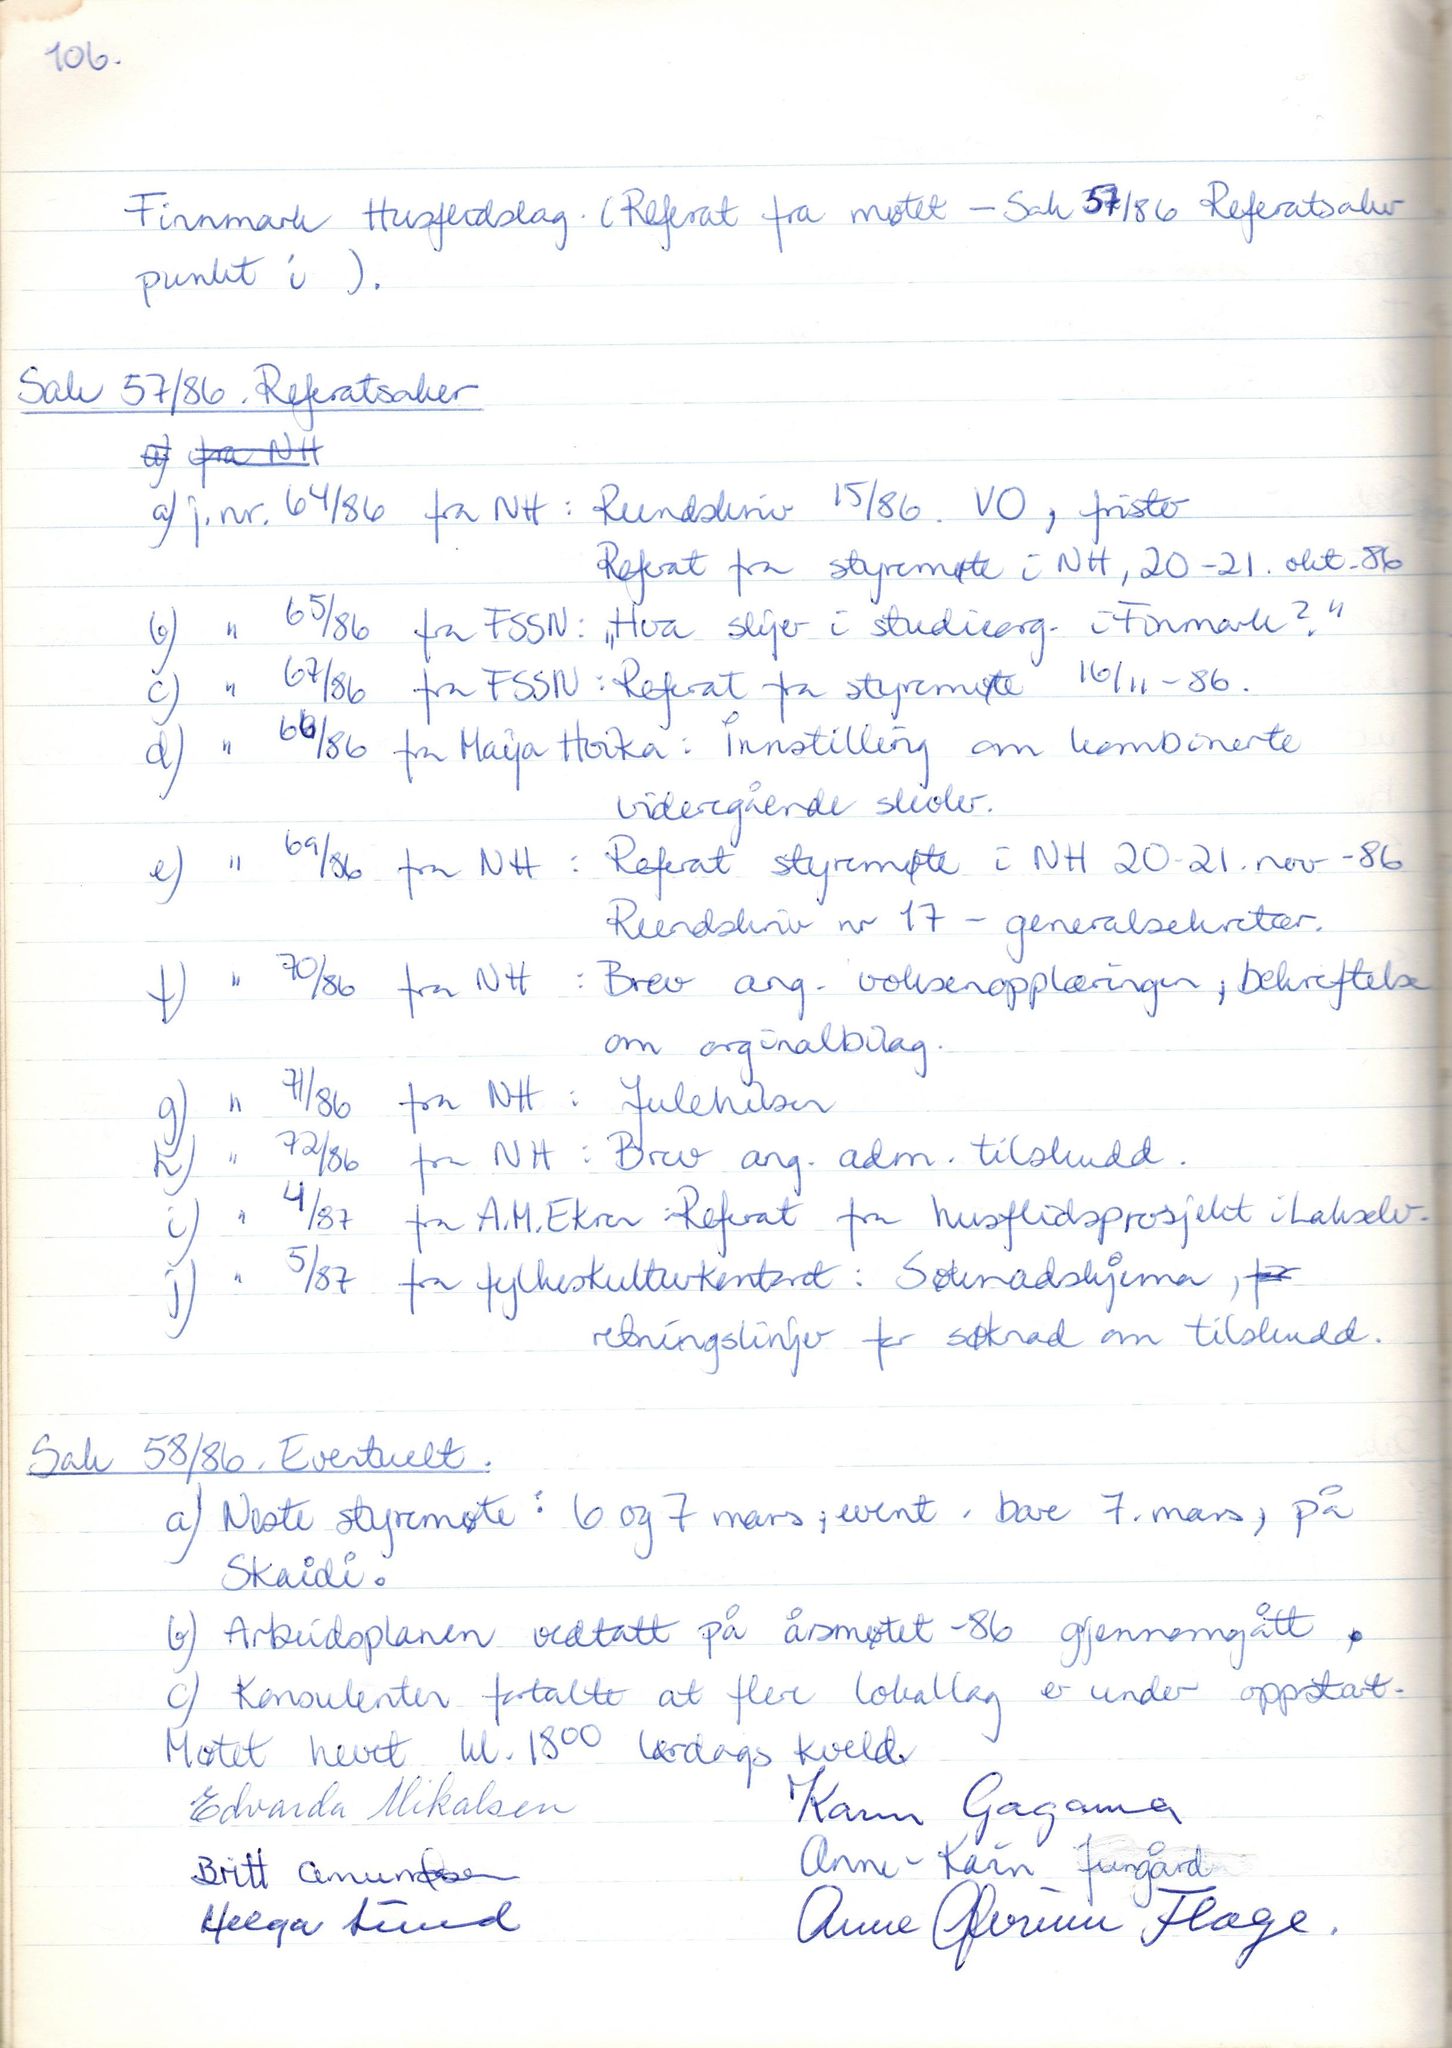 106.
Finnmark Husflidslag. (Referat fra møtet – Sak 57/86 Referatsaker
punkt i ).
Sak 57/86. Referatsaker
a) fra NH
a) j.nr. 64/86 fra NH : Rundskriv 15/86. VO, frister
Referat fra styremøte i NH, 20-21. okt-86
b) " 65/86 fra FSSN: „Hva skjer i studieorg. i Finmark?"
c) " 67/86 fra FSSN: Referat fra styremøte 16/11-86.
d) " 66/86 fra Maija Hoika: Innstilling om kombinerte
videregående skoler.
e) " 69/86 fra NH : Referat styremøte i NH 20-21. nov -86
Rundskriv nr 17 – generalsekretær.
f) " 70/86 fra NH : Brev ang. voksenopplæringen, bekreftelse
om orginalbilag.
g) " 71/86 fra NH : Julehilsen
h) " 72/86 fra NH : Brev ang. adm. tilskudd.
i) " 4/87 fra A.M. Ekrer : Referat fra husflidsprosjekt i Lakselv.
j) " 5/87 fra fylkeskulturkontoret : Søknadskjema, for
retningslinjer for søknad om tilskudd.
Sak 58/86. Eventuelt.
a) Neste styremøte : 6 og 7 mars, event. bare 7. mars, på
Skaidi.
b) Arbeidsplanen vedtatt på årsmøtet -86 gjennomgått.
c) Konsulenten fortalte at flere lokallag er under oppstart.
Møtet hevet kl. 1800 lørdags kveld.
Edvarda Mikalsen Karin Gagama
Britt Amundsen Anne-Karin Jungård
Helga Lund Anne Flage.